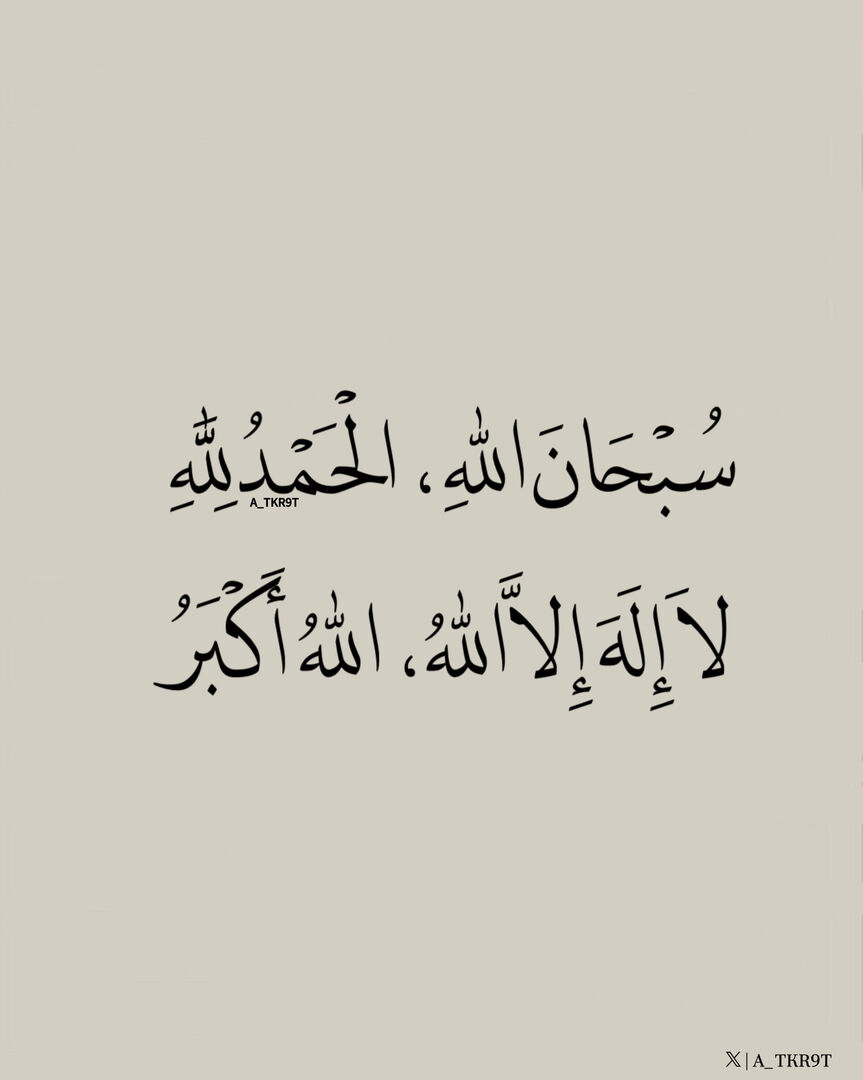 سُبْحَانَ اللهِ، الْحَمْدُ لِلّٰهِ
A_TKR9T
لَا إِلَهَ إِلَّا اللهُ، اللهُ أَكْبَرُ
𝕏 | A_TKR9T